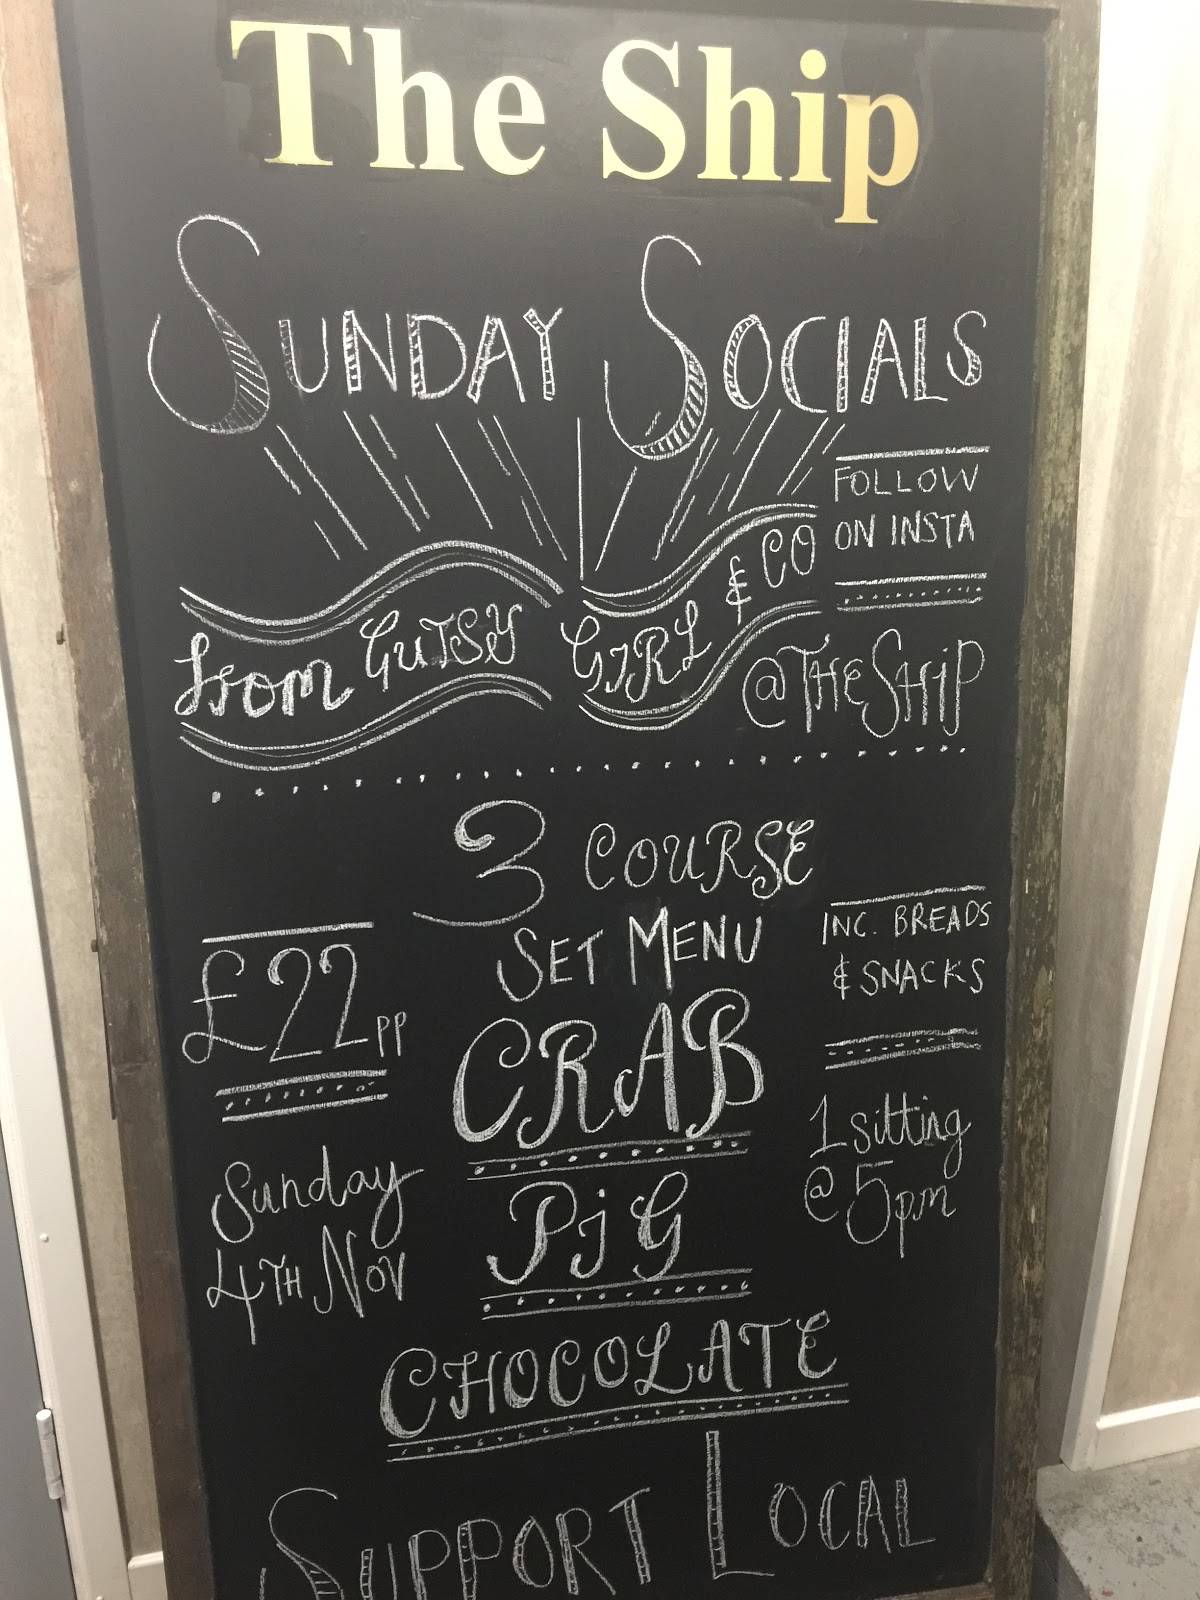 The Ship
SUNDAY SOCIALS
from GUTSY GIRL & CO
FOLLOW
ON INSTA
@THESHIP
3 COURSE
SET MENU
£22 PP
INC. BREADS
& SNACKS
CRAB
PIG
CHOCOLATE
Sunday
4TH NOV
1 sitting
@ 5pm
SUPPORT LOCAL